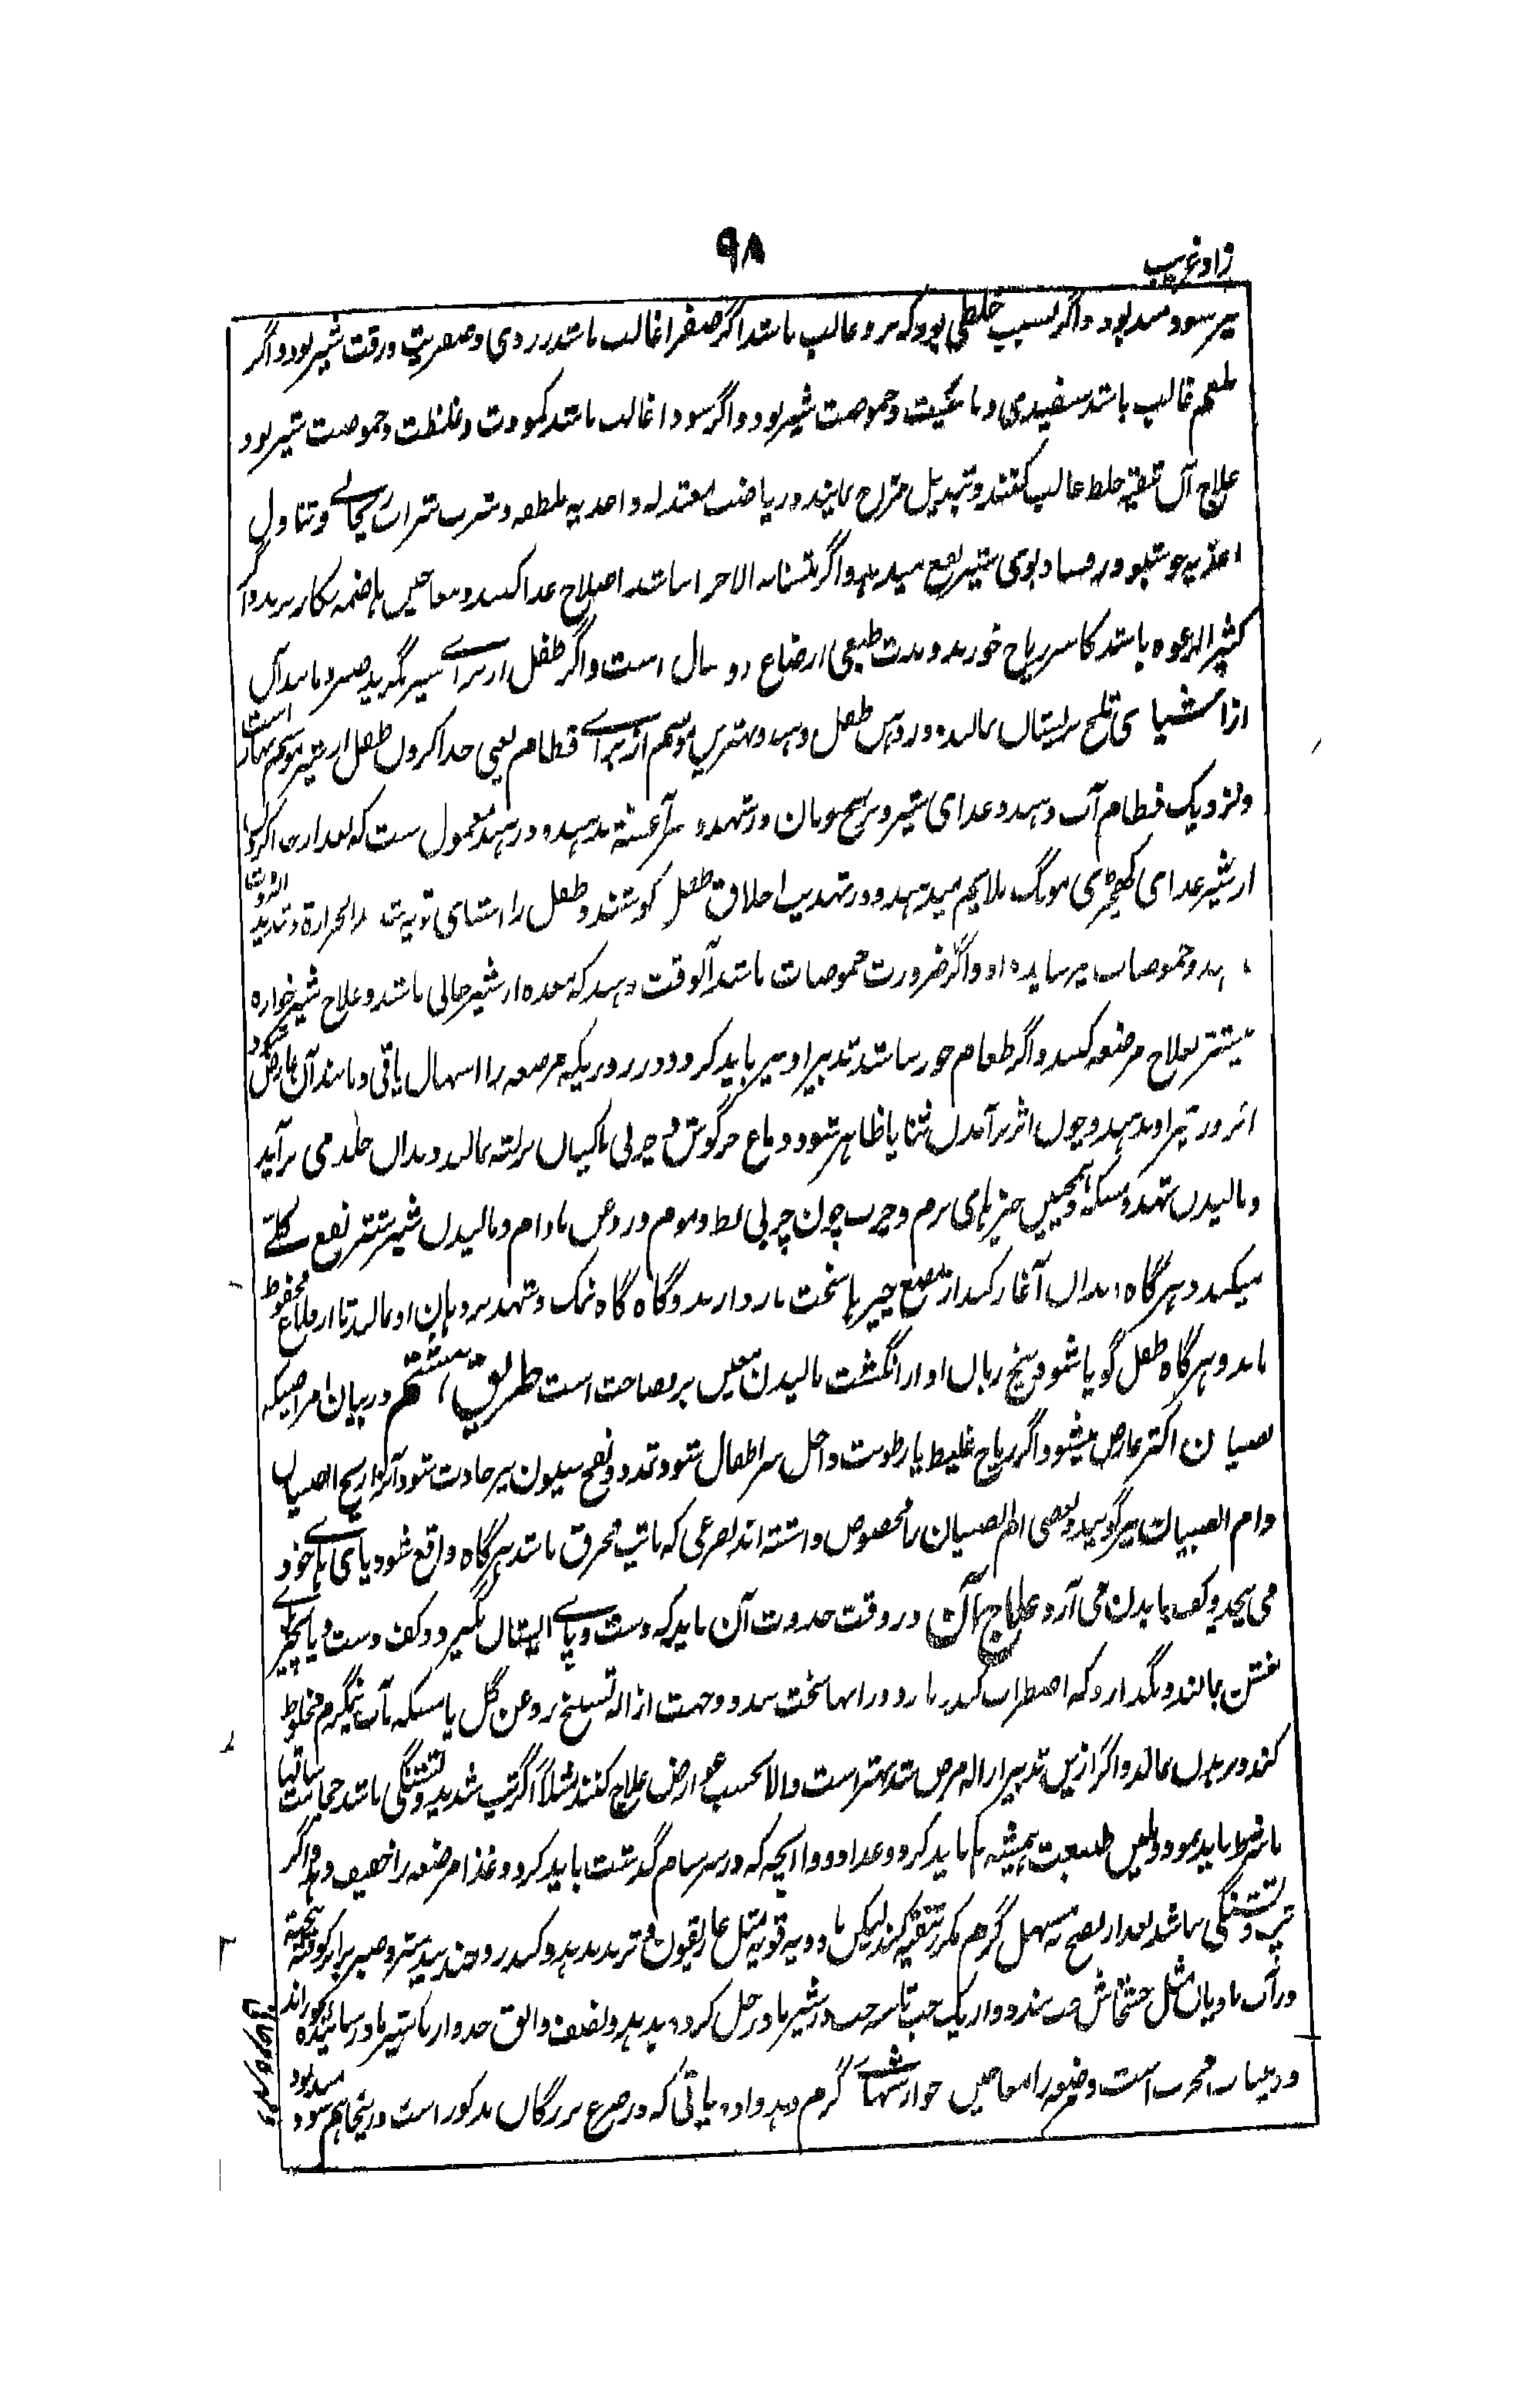 زاد غریب
۹۸
بود واگر بسبب خلطی بود که بر و غالب باشد اگر صفرا غالب باشد زردی و صفریت و رقت شیر بود و اگر
بلغم غالب باشد سفیدی و مائیت و حموضت شیر بود و اگر سودا غالب باشد کمودت و غلظت و حموضت شیر بود
علاج آن تنقیه خلط غالب کنند و تبدیل مزاج نمایند و ریاضت معتدله و اغذیه ملطفه و شرب شراب ریحانی و تناول
اغذیه خوشبو در فساد بوی شیر نفع میدهد و اگر باشد اصلاح غذا کنند و معاجین هاضمه بکار برند و اگر
کثیر الرغوه باشد کاسر ریاح خورند و مدت طبیعی ارضاع دو سال است و اگر طفل از برای شیر بگرید صبر و مانند آن
از اشیای تلخ بر پستان مالیده در دهن طفل دهند و بهترین موسم از برای فطام یعنی جدا کردن طفل از شیر موسم بهار است
و نزدیک فطام آب دهند و غذای شیر و برنج و نان در شهد و سرآغشته بدهند و در هند معمول ست که بعد از جدا کردن
از شیر غذای کھچڑی مونگ ملایم میدهند و در تهذیب اخلاق طفل کوشند و طفل را اشیای قویة الحرارة و شدید البرودت
ندهند و حموضات نیز نباید داد و اگر ضرورت حموضات باشد آنوقت دهند که معده از شیر خالی باشد و علاج شیر خواره
بیشتر بعلاج مرضعه کنند و اگر طعام خور باشد تدبیر او نیز باید کرد و در روزیکه مرضعه را اسهال یا قی و مانند آن عارض شود
اثر در شیر او ندهند و چون اثر برآمدن ثنایا ظاهر شود دماغ خرگوش و چربی ماکیان بر لثه مالند و بدان جلد می برآید
و مالیدن شهد و مسکه و همچنین چیزهای نرم و چرب چون چربی بط و موم و روغن بادام و مالیدن شیر شتر نفع کلی
میکند و هرگاه دندان آغاز کند از مضغ چیزها سخت باز دارند و گاه گاه نمک و شهد بر دهان او مالند تا از قلاع محفوظ
ماند و هرگاه طفل گویا شود بیخ زبان او از انگشت مالیدن معین بر فصاحت است طریق هشتم در بیان امراضیکه
بصبیان اکثر عارض میشود اگر ریاح غلیظ یا رطوبت داخل سر اطفال شود تمدد و نفخ نیز حادث شود آنرا ریح الصبیان
و ام الصبیان نیز گویند و بعضی ام الصبیان را مخصوص داشته اند بصرعی که با تپ محرق باشد هرگاه واقع شود پای های خود
می پیچد و کف بدهن می آرد علاج آن در وقت حدوث آن باید که دست و پای ایشان بگیرد و کف دست و پا بچیزی
خشن بمالند و نگذارد که اضطراب کند بازو و رانها سخت بندد و جهت ازاله تشنج روغن گل یا مسکه بآب نیگرم مخلوط
کنند و بر بدن مالند و اگر ازین تدبیر ازاله مرض شد بهتر است والا بحسب عوارض علاج کنند مثلاً اگر تپ شدید و تشنگی باشد حجامت ساقها
با شرط باید نمود و تلیین طبیعت همیشه باید کرد و غذا و دوا آنچه که در سرسام گذشت باید کرد و غذا مرضعه را خفیف دهند و اگر
تپ و تشنگی نباشد بعد از نضج به مسهل گرم مکرر تنقیه کنند لیکن بادویه قویه مثل غاریقون و تربد ندهند و کندر و جند بیدستر و صبر برابر کوفته بیخته
در آب بادیان مثل خشخاش حب بندد و از یک حب تا سه حب در شیر مادر حل کرده بدهند و نصف دانق جدوار با شیر مادر سائیده خوراند
و مجرب است و مرضعه را معاجین جوارشها گرم دهند و ادویاتی که در صرع بزرگان مذکور است در اینجا هم سود میدهد